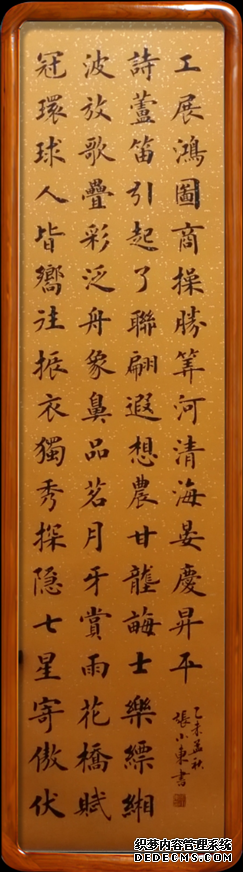 冠環球人皆嚮往振衣獨秀探隐七星寄傲伏
波放歌疊彩泛舟象鼻品茗月牙賞雨花橋賦
詩蘆笛引起了聯翩遐想農甘壟畮士樂縹緗
工展鴻圖商操勝筭河清海晏慶昇平
乙未孟秋
張小東書
织梦内容管理系统
DEDECMS.COM